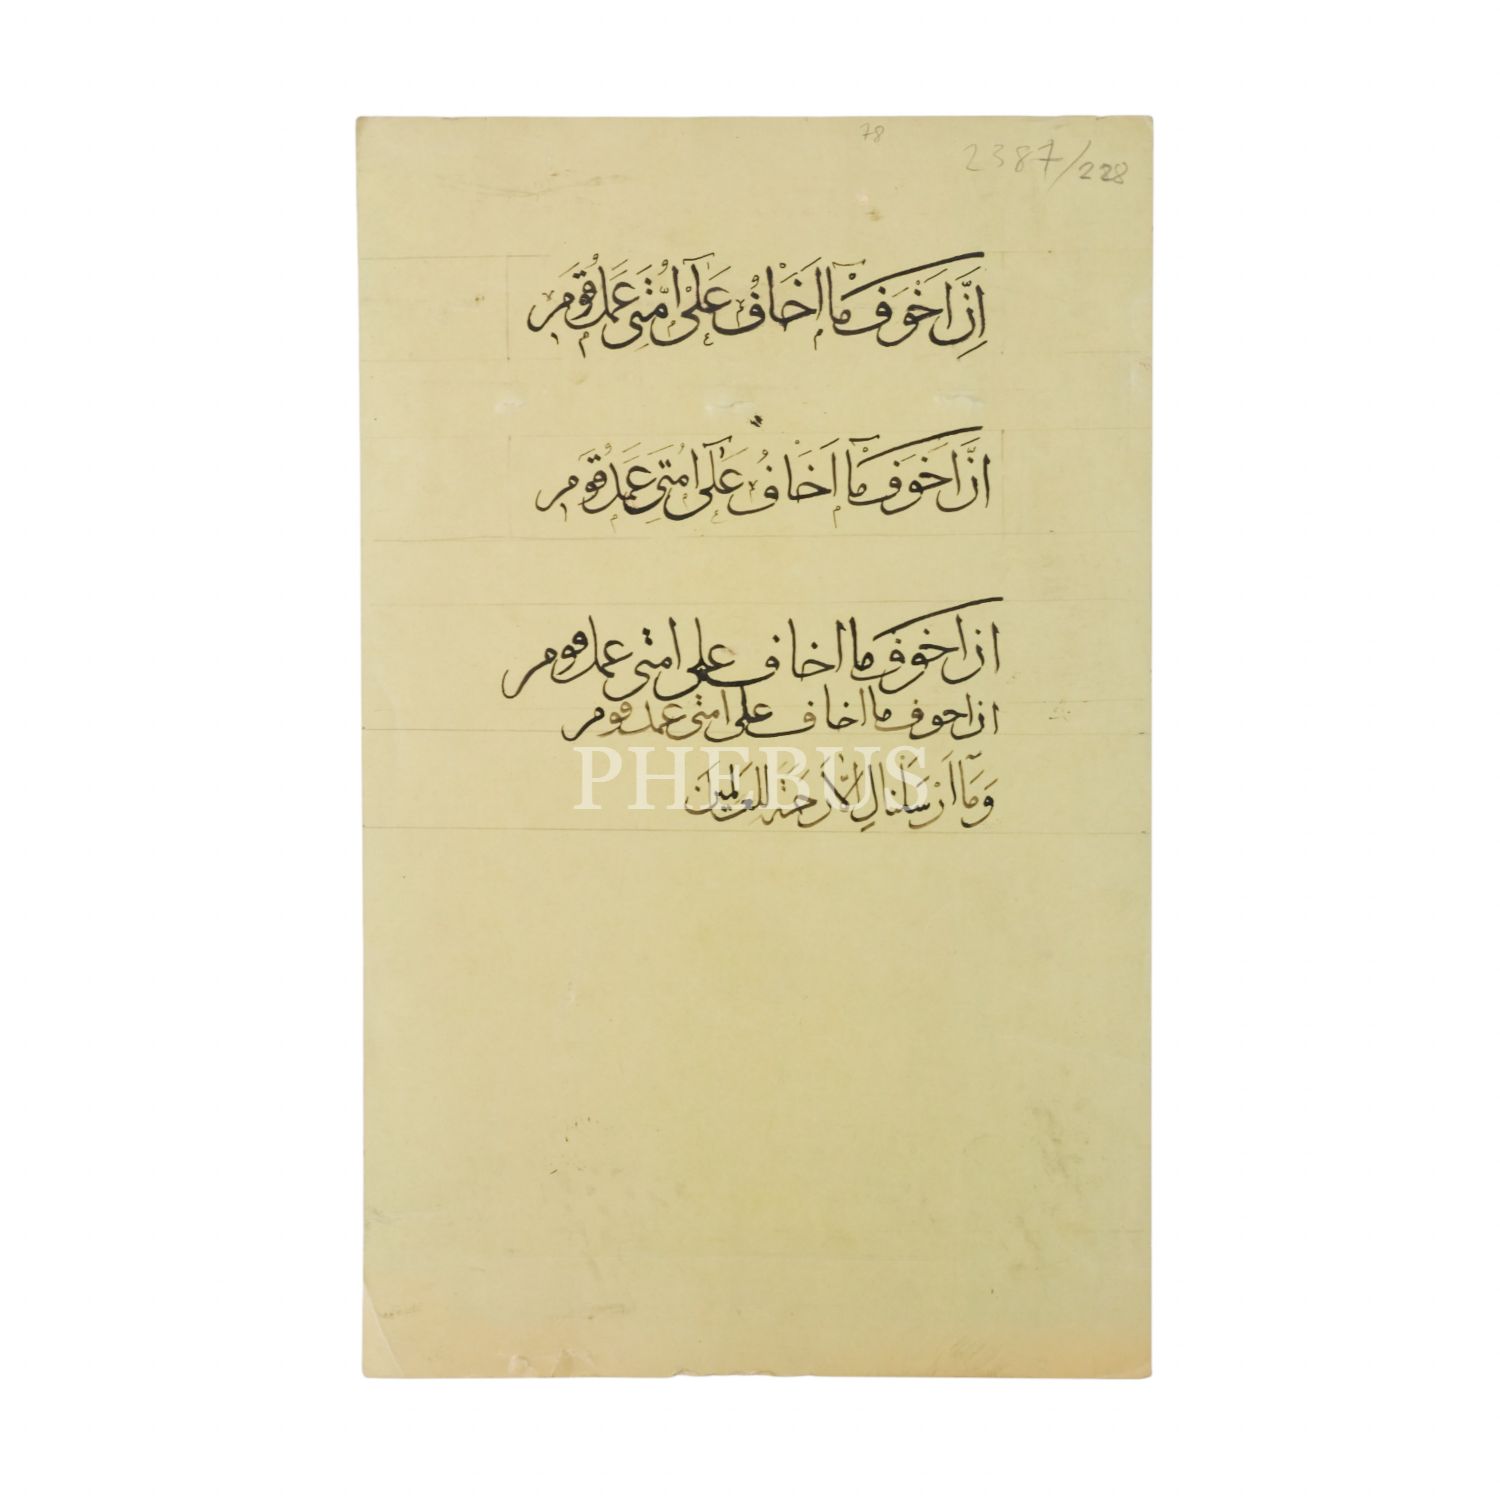 78
2387/228
اِنَّ اَخْوَفَ مَٓا اَخَافُ عَلٰٓى اُمَّتِى عَمَلُ قَوْمِ
اِنَّ اَخْوَفَ مَٓا اَخَافُ عَلٰٓى اُمَّتِى عَمَلُ قَوْمِ
ان اخوف ما اخاف على امتى عمل قوم
ان اخوف ما اخاف على امتى عمل قوم
PHEBUS
وَمَٓا اَرْسَلْنَاكَ اِلَّا رَحْمَةً لِلْعَالَمِينَ